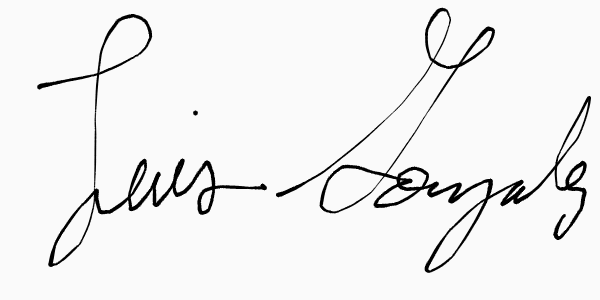 Luis Gonzalez